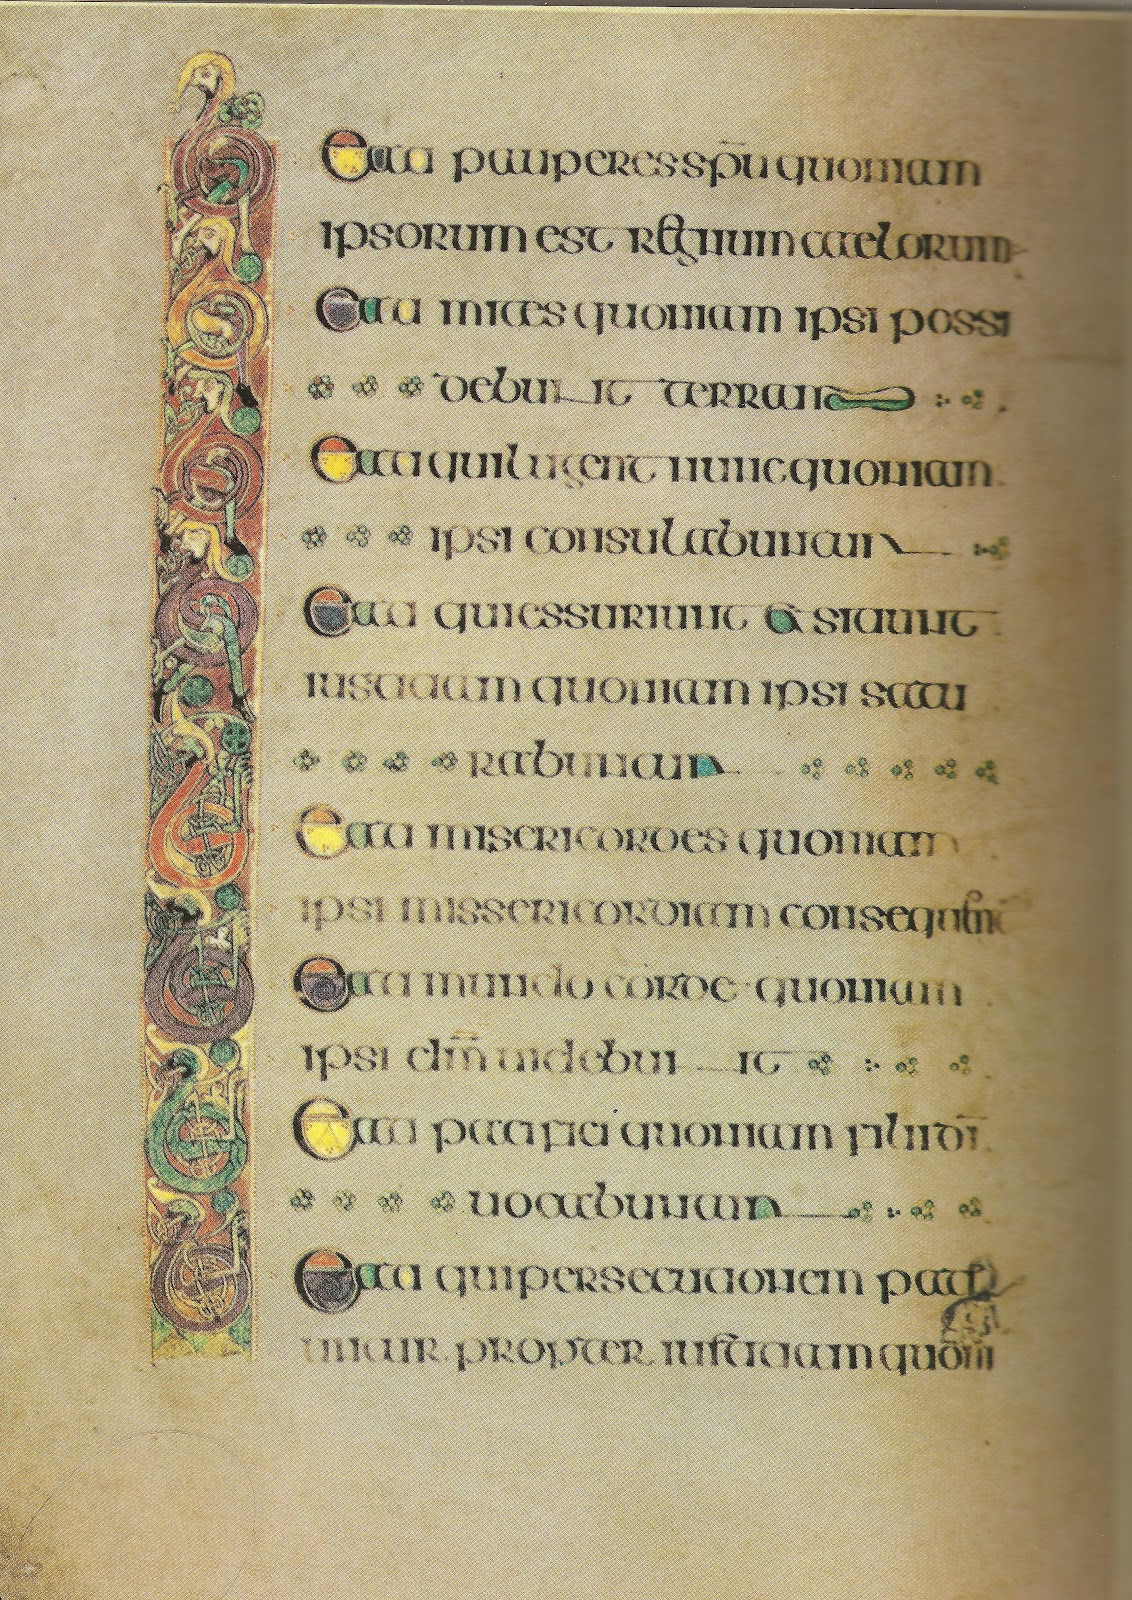 Eati pauperes spu quoniam
ipsorum est regnum caelorum
Eati mites quoniam ipsi possi
debunt terram
Eati qui lugent nunc quoniam
ipsi consulabuntur
Eati qui essuriunt & sitiunt
iustitiam quoniam ipsi satu
rabuntur
Eati misericordes quoniam
ipsi missericordiam consequent
Eati mundo corde quoniam
ipsi dm videbunt
Eati pacifici quoniam filii di
vocabuntur
Eati qui persecutionem pati
untur propter iustitiam quom